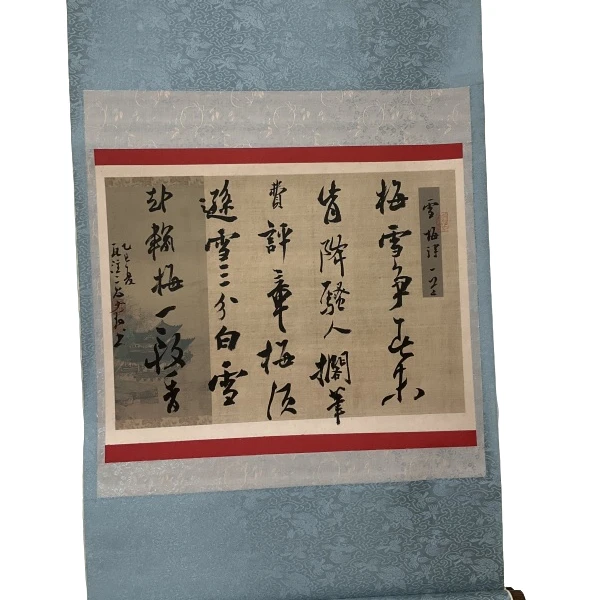 雪梅詩一首
梅雪爭春未
肯降騷人擱筆
費評章梅須
遜雪三分白雪
却輸梅一段香
乙巳夏